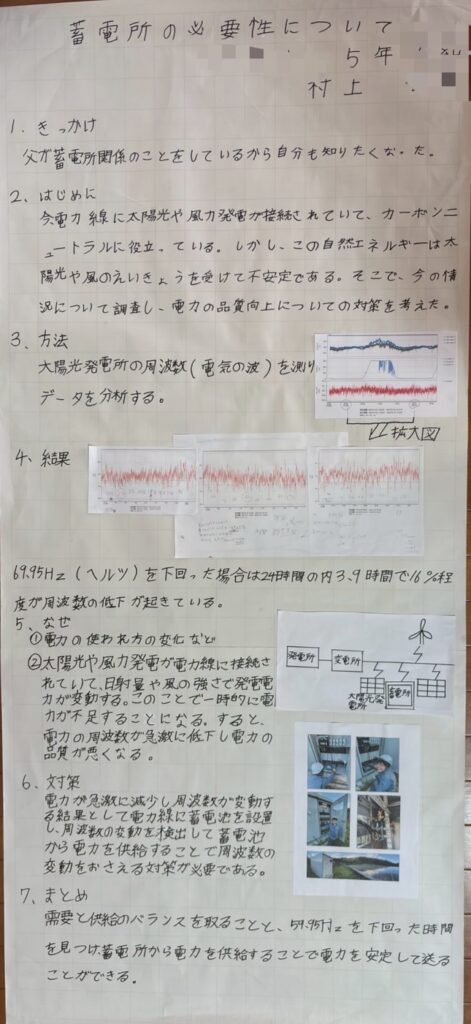 蓄電所の必要性について
5年
村上
1. きっかけ
父が蓄電所関係のことをしているから自分も知りたくなった。
2. はじめに
今電力線に太陽光や風力発電が接続されていて、カーボンニ
ュートラルに役立っている。しかし、この自然エネルギーは太
陽光や風のえいきょうを受けて不安定である。そこで、今の情
況について調査し、電力の品質向上についての対策を考えた。
3. 方法
太陽光発電所の周波数(電気の波)を測り
データを分析する。
拡大図
4、結果
69.95Hz(ヘルツ)を下回った場合は24時間の内3、9時間で16%程
度が周波数の低下が起きている。
5、なぜ
①電力の使われ方の変化など
②太陽光や風力発電が電力線に接続さ
れていて、日射量や風の強さで発電電
力が変動する。このことで一時的に電
力が不足することになる。すると、
電力の周波数が急激に低下し電力の
品質が悪くなる。
発電所
変電所
太陽光発
電所
蓄電所
6. 対策
電力が急激に減少し周波数が変動す
る結果として電力線に蓄電池を設置
し、周波数の変動を検出して蓄電池
から電力を供給することで周波数の
変動をおさえる対策が必要である。
7. まとめ
需要と供給のバランスを取ることと、59.95Hzを下回った時間
を見つけ蓄電所から電力を供給することで電力を安定して送る
ことができる。